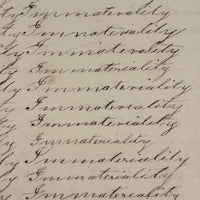 ty Immateriality
ty Immateriality
ty Immateriality
ty Immateriality
ty Immateriality
ty Immateriality
ty Immateriality
ty Immateriality
ty Immateriality
ty Immateriality